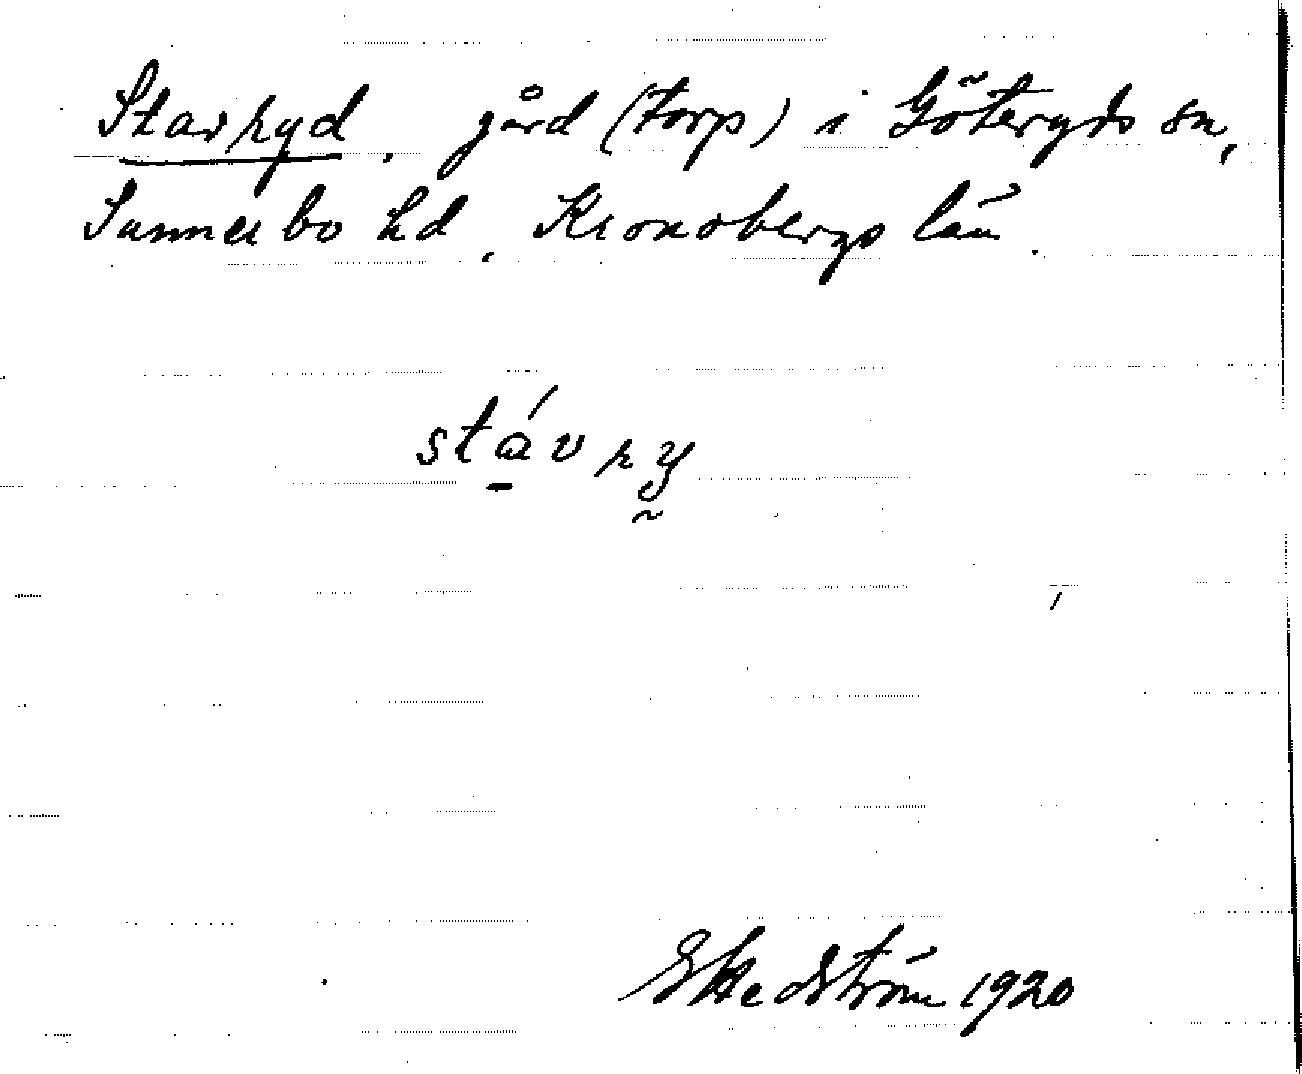 Stavhyd, gård (torp) i Göteryds sn,
Sunnerbo hd, Kronobergs län.
stávry
G Hedström 1920